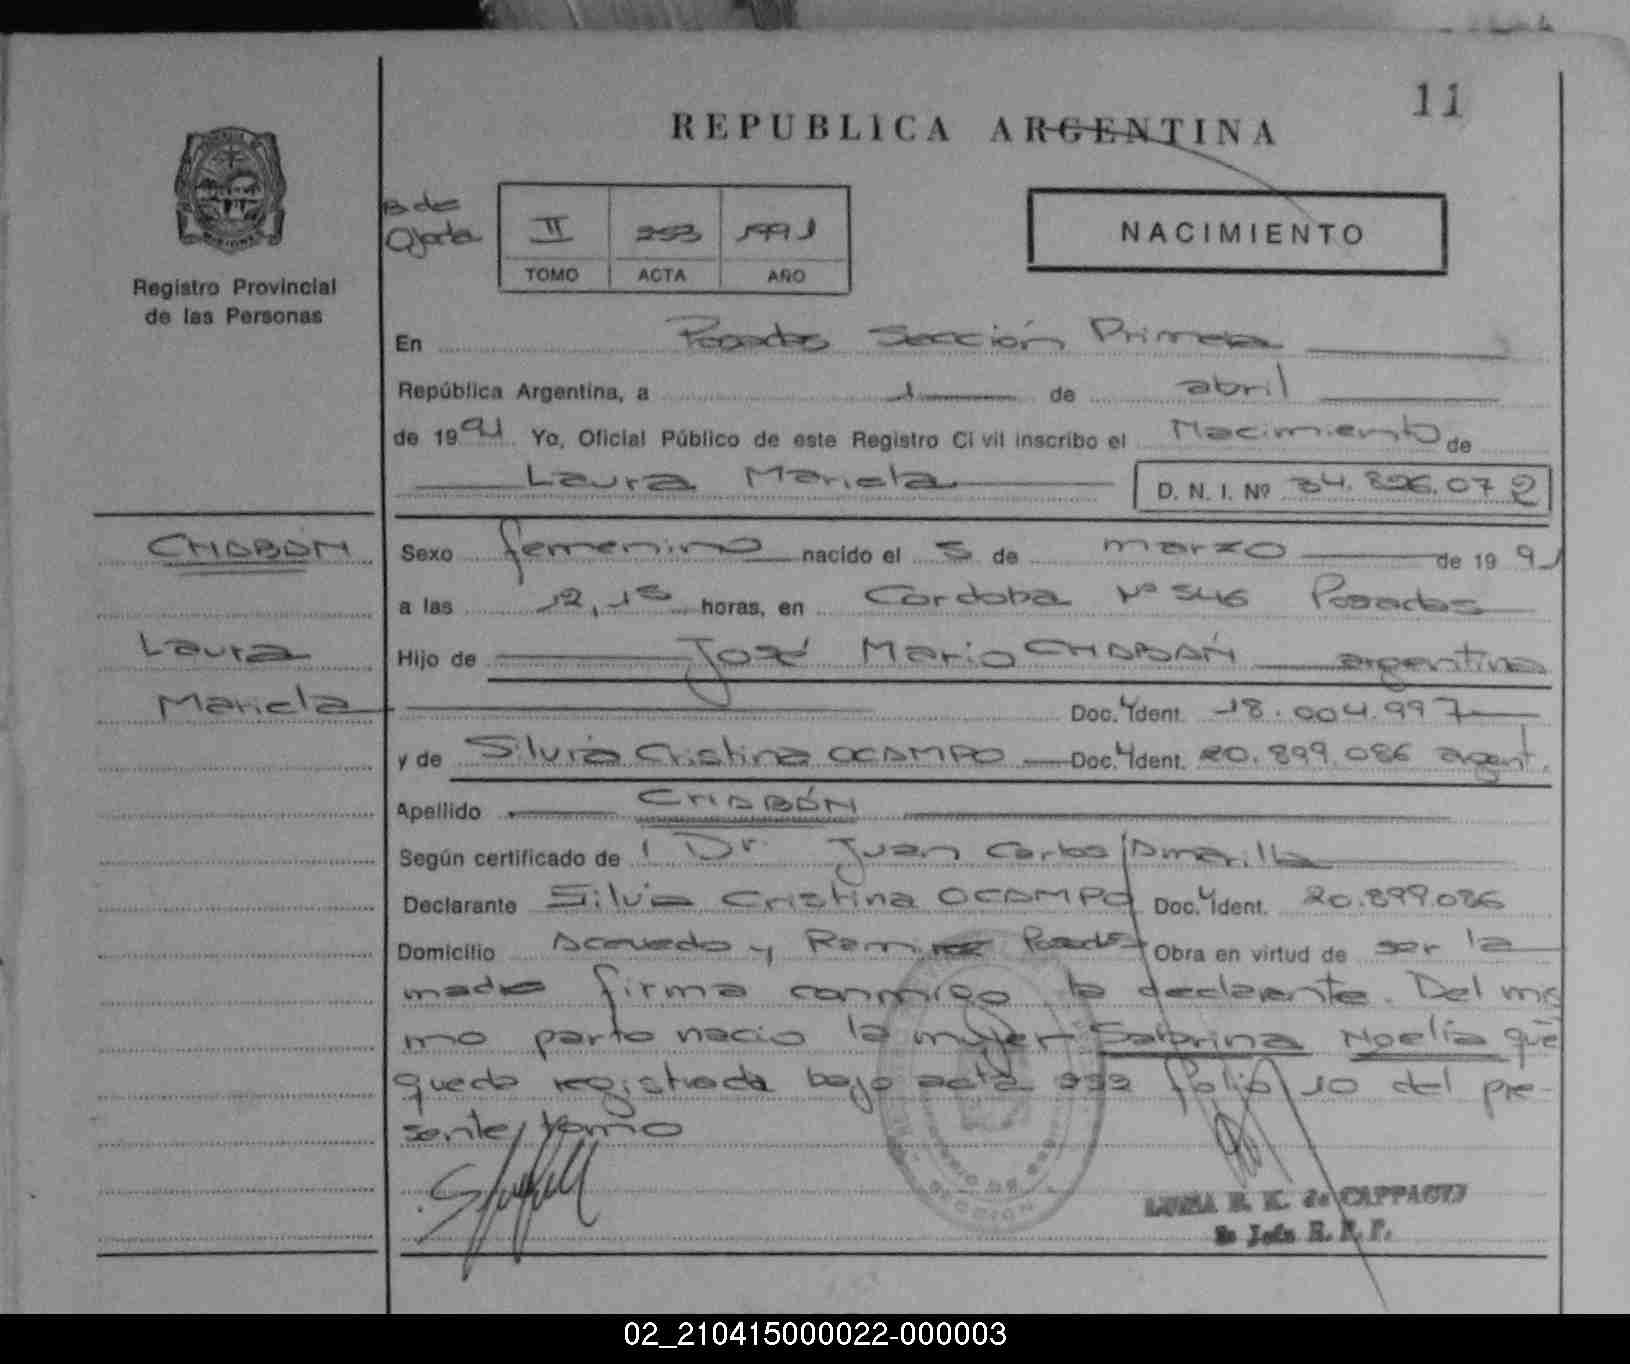 11
REPUBLICA ARGENTINA
B de
II 253 1991
TOMO ACTA AÑO
NACIMIENTO
Registro Provincial
de las Personas
En Posadas Sección Primera
República Argentina, a 1 de abril
de 1991 Yo, Oficial Público de este Registro Civil inscribo el Nacimiento de
Laura Mariela D. N. I. Nº 34.826.072
CHABAN
Sexo femenino nacido el 5 de marzo de 1991
a las 12,15 horas, en Cordoba Nº 546 Posadas
Laura
Hijo de José Mario CHABÁN argentino
Mariela
Doc. Ident. 18.004.997
y de Silvia Cristina OCAMPO Doc. Ident. 20.899.086 argent.
Apellido CHABÁN
Según certificado de Dr. Juan Carlos Amarilla
Declarante Silvia Cristina OCAMPO Doc. Ident. 20.899.086
Domicilio Acevedo y Ramirez Posadas Obra en virtud de ser la
madre firma conmigo la declarante. Del mis
mo parto nacio la mujer Sabrina Noelia que
queda registrada bajo acta 252 folio 10 del pre-
sente tomo
LUISA E. K. de
2o Jefe R. P. P.
02_210415000022-000003